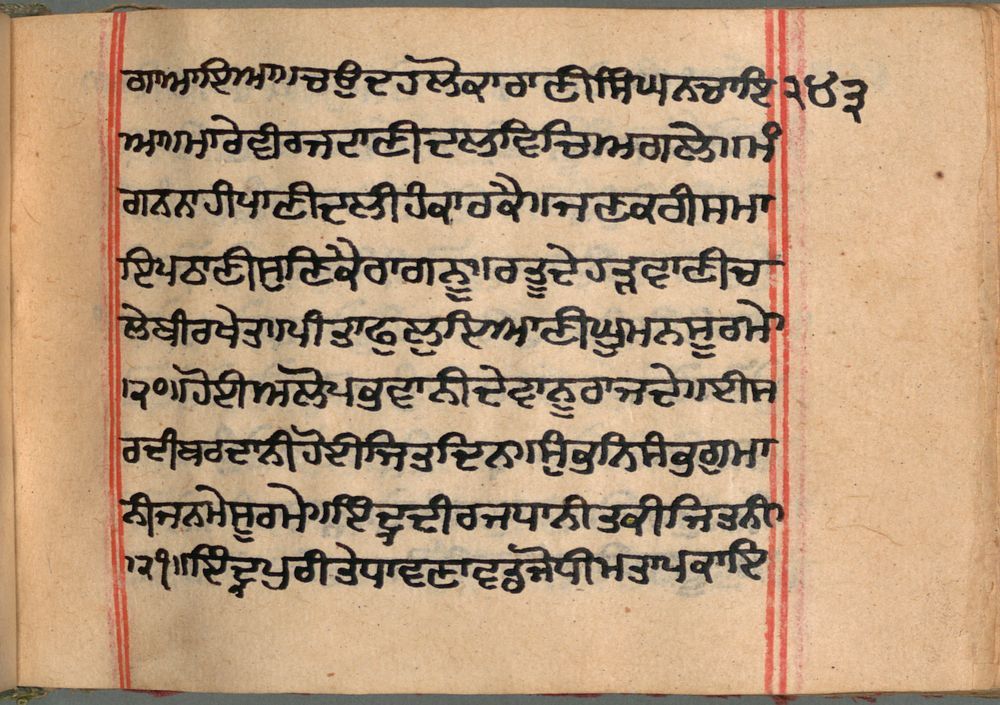 ਗਾਆਇਆ॥ਚਉਦਹਲੋਕਾਰਾਣੀਸਿੰਘਨਚਾਇ ੨੪੩
ਆ॥ਮਾਰੇਵੀਰਜਟਾਣੀਦਲਵਿਚਿਅਗਲੇ॥ਮੰ
ਗਨਨਾਹੀਪਾਣੀਦਲੀਹੰਕਾਰਕੈ॥ਜਣਕਰੀਸਮਾ
ਇਪਠਾਣੀਸੁਣਿਕੈਰਾਗਨੂ॥ਰਤੂਦੇਹੜਵਾਣੀਚ
ਲੇਬੀਰਖੇਤ॥ਪੀਤਾਫੁਲੁਇਆਣੀਘੁਮਨਸੂਰਮੇ
॥੨੦॥ਹੋਈਅਲੋਪਭਵਾਨੀਦੇਵਾਨੂਰਾਜਦੇ॥ਈਸ
ਰਦੀਬਰਦਾਨੀਹੋਈਜਿਤਦਿਨ॥ਸੁੰਭਨਿਸੰਭਗੁਮਾ
ਨੀਜਨਮੇਸੂਰਮੇ॥ਇੰਦ੍ਰਦੀਰਜਧਾਨੀਤਕੀਜਿਤਨੀ
॥੨੧॥ਇੰਦ੍ਰਪੁਰੀਤੇਧਾਵਣਾਵਡਜੋਧੀਮਤਾਪਕਾਇ